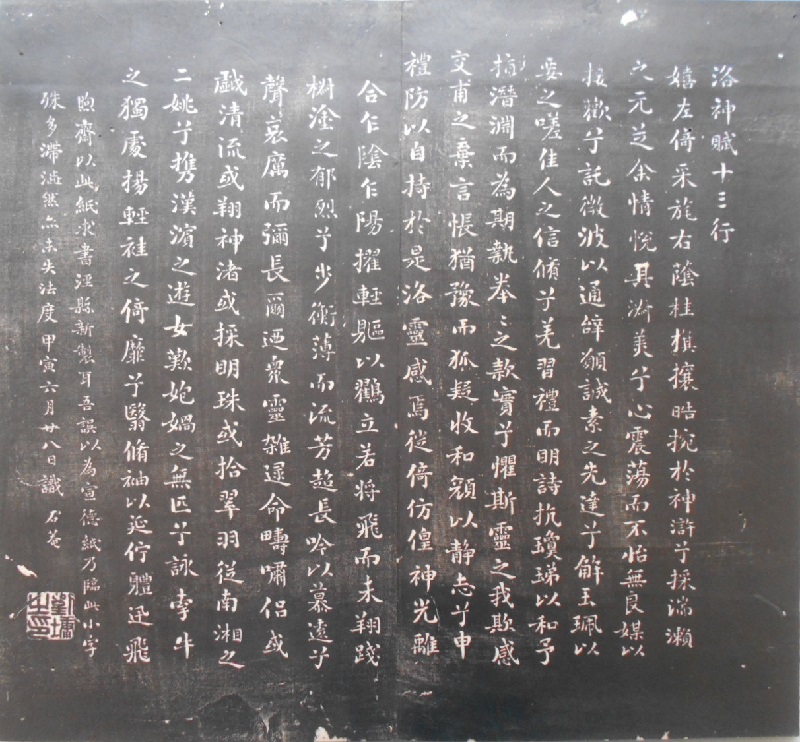 洛神賦十三行
嬉左倚采旄右蔭桂旗攘皓捥於神滸兮採湍瀨
之元芝余情悅其淑美兮心震蕩而不怡無良媒以
接歡兮託微波以通辭願誠素之先達兮解玉珮以
要之嗟佳人之信脩兮羌習禮而明詩抗瓊珶以和予兮
指潛淵而為期執拳〻之款實兮懼斯靈之我欺感
交甫之棄言悵猶豫而狐疑收和顏以靜志兮申
禮防以自持於是洛靈感焉徙倚仿偟神光離
合乍陰乍陽擢輕軀以鶴立若將飛而未翔踐
椒塗之郁烈兮步衡薄而流芳超長吟以慕遠兮
聲哀厲而彌長爾迺眾靈雜遝命疇嘯侶或
戲清流或翔神渚或採明珠或拾翠羽從南湘之
二姚兮攜漢濱之遊女歎匏媧之無匹兮詠牽牛
之獨處揚輕袿之倚靡兮翳脩袖以延佇體迅飛
煦齋以此紙求書涇縣新製耳吾誤以為宣德紙乃臨此小字
殊多滯澁然亦未失法度甲寅六月廿八日識 石菴
劉墉之印